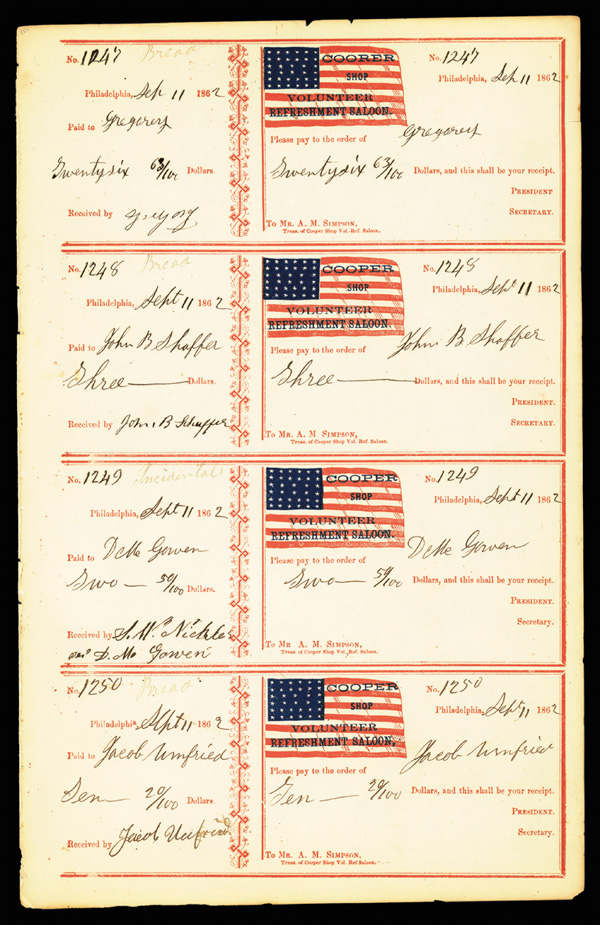 No. 1247 Bread
Philadelphia, Sep 11 1862
Paid to Gregorery
Twentysix 63/100 Dollars.
Received by Gregory
COOPER
SHOP
VOLUNTEER
REFRESHMENT SALOON.
No. 1247
Philadelphia, Sep 11 1862
Please pay to the order of Gregorery
Twentysix 63/100 Dollars, and this shall be your receipt.
PRESIDENT
SECRETARY.
To MR. A. M. SIMPSON,
Treas. of Cooper Shop Vol. Ref. Saloon.
No. 1248 Bread
Philadelphia, Sept 11 1862
Paid to John B Shaffer
Three Dollars.
Received by John B Schaffer
COOPER
SHOP
VOLUNTEER
REFRESHMENT SALOON.
No. 1248
Philadelphia, Sept 11 1862
Please pay to the order of John B Shaffer
Three Dollars, and this shall be your receipt.
PRESIDENT.
SECRETARY.
To MR. A. M. SIMPSON,
Treas. of Cooper Shop Vol. Ref. Saloon.
No. 1249 Incidentals
Philadelphia, Sept 11 1862
Paid to D Mc Gowen
Two 50/100 Dollars.
Received by S. W. Nickles
D. Mc Gowen
COOPER
SHOP
VOLUNTEER
REFRESHMENT SALOON.
No. 1249
Philadelphia, Sept 11 1862
Please pay to the order of D Mc Gowen
Two 50/100 Dollars, and this shall be your receipt.
PRESIDENT.
Secretary.
To MR. A. M. SIMPSON,
Treas. of Cooper Shop Vol. Ref. Saloon.
No. 1250 Bread
Philadelphia, Sept 11 1862
Paid to Jacob Umfried
Ten 20/100 Dollars.
Received by Jacob Umfried
COOPER
SHOP
VOLUNTEER
REFRESHMENT SALOON,
No. 1250
Philadelphia, Sept 11 1862
Please pay to the order of Jacob Umfried
Ten 20/100 Dollars, and this shall be your receipt.
PRESIDENT.
Secretary.
To MR. A. M. SIMPSON,
Treas. of Cooper Shop Vol. Ref. Saloon.